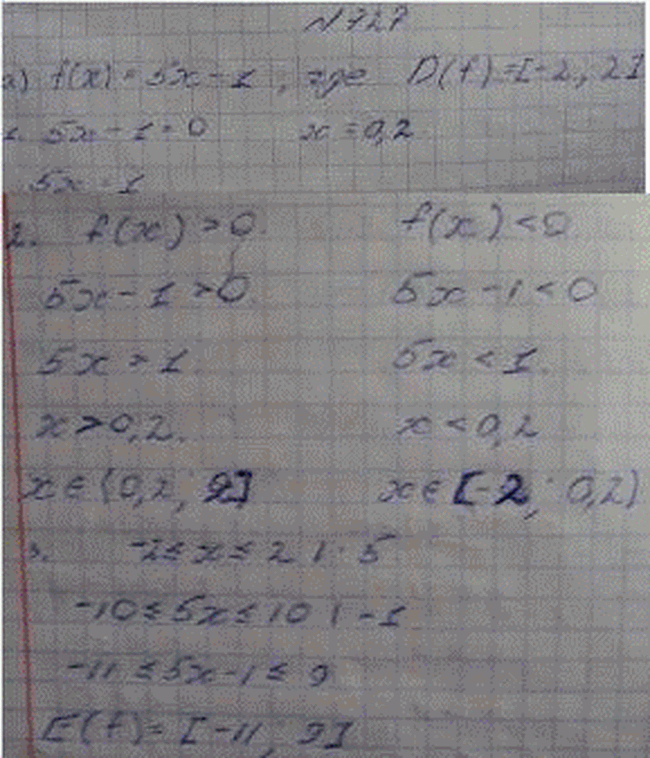 №727
а) f(x) = 5x - 1, где D(f) = [-2; 2]
1. 5x - 1 = 0 x = 0,2
5x = 1
2. f(x) > 0 f(x) < 0
5x - 1 > 0 5x - 1 < 0
5x > 1 5x < 1
x > 0,2. x < 0,2
x ∈ (0,2; 9] x ∈ [-2; 0,2)
3. -2 ≤ x ≤ 2 | · 5
-10 ≤ 5x ≤ 10 | -1
-11 ≤ 5x - 1 ≤ 9
E(f) = [-11; 9]